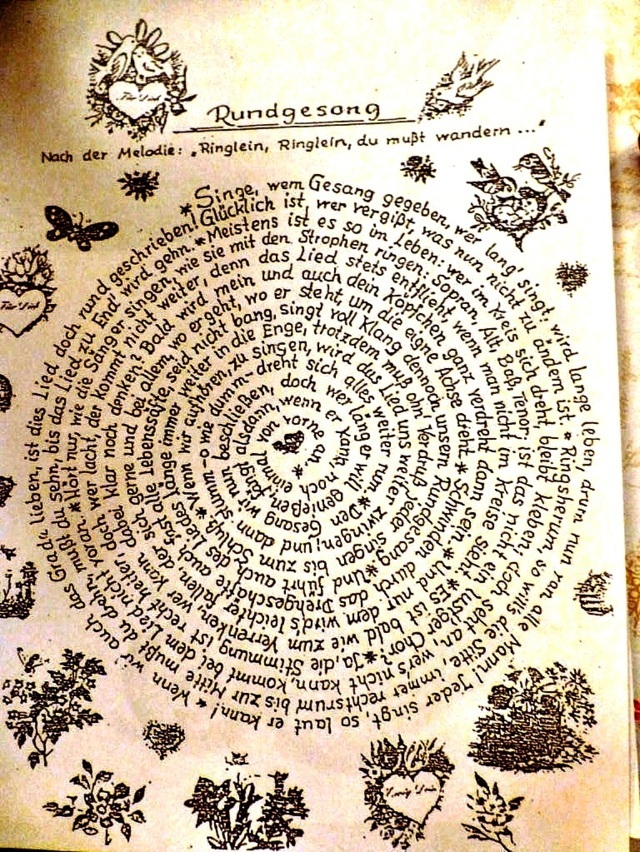 Für Dich
Rundgesong
Nach der Melodie: „Ringlein, Ringlein, du mußt wandern ..."
*Singe, wem Gesang gegeben, wer lang' singt, wird lange leben, drum nun ran alle Mann! Jeder singt, so laut er kann!
* Wenn wir auch das Grade lieben, ist dies Lied doch rund geschrieben! Glücklich ist, wer vergißt, was nun nicht zu ändern ist.
* Ringsherum, so will's die Sitte, immer rechtsrum bis zur Mitte mußt du drehn, mußt du sehn, bis das Lied zu End' wird gehn.
* Meistens ist es so im Leben: wer im Kreis sich dreht, bleibt kleben; doch seht an, wer's nicht kann, kommt bei dem Lied nicht voran.
* Hört nur, wie die Sänger singen, wie sie mit den Strophen ringen: Sopran, Alt, Baß, Tenor: ist das nicht ein lust'ger Chor?
* Ja die Stimmung ist recht heiter, doch wer lacht, der kommt nicht weiter, denn das Lied stets entflieht, wenn man nicht im Kreise sieht.
* Es ist bald wie zum Verrenken, wer kann dabei klar noch denken? Bald wird mein und auch dein Köpfchen ganz verdreht dann sein.
* Und nur dem wird's leichter fallen, der sich gerne und bei allem, wo er geht, wo er steht, um die eigne Achse dreht.
* Schwinden durch das Drehgeschäfte auch fast alle Lebenssäfte, seid nicht bang, singt voll Klang dennoch unsern Rundgesang.
* Und führt auch des Liedes Länge immer weiter in die Enge, trotzdem muß ohn' Verdruß jeder singen bis zum Schluß.
* Wenn wir aufhören, zu singen, wird das Lied uns weiter zwingen; und dann stumm - o wie dumm - dreht sich alles weiter rum.
* Den Gesang wir nun beschließen, doch wer lang er will genießen, fängt alsdann, wenn er kann, noch einmal von vorne an. *
Für Dich